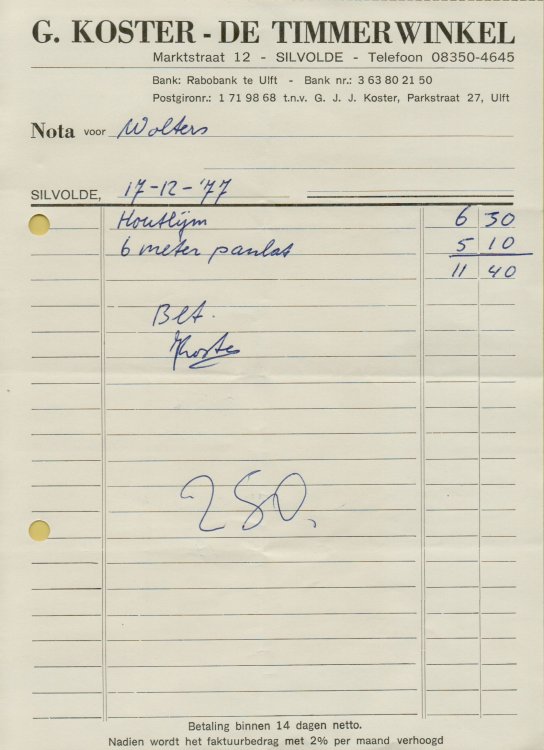 G. KOSTER - DE TIMMERWINKEL
Marktstraat 12 - SILVOLDE - Telefoon 08350-4645
Bank: Rabobank te Ulft - Bank nr.: 3 63 80 21 50
Postgironr.: 1 71 98 68 t.n.v. G. J. J. Koster, Parkstraat 27, Ulft
Nota voor Wolters
SILVOLDE, 17-12-'77
Houtlijm 6 30
6 meter panlat 5 10
11 40
Bet.
Koster
280,
Betaling binnen 14 dagen netto.
Nadien wordt het faktuurbedrag met 2% per maand verhoogd